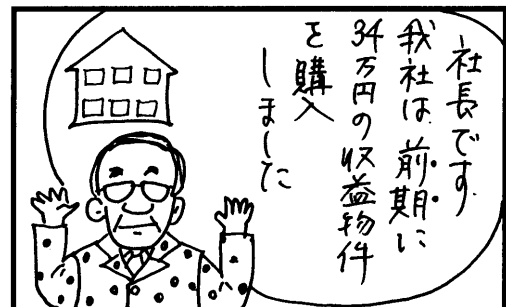 社長です
我社は前期に
34万円の収益物件
を購入
しました